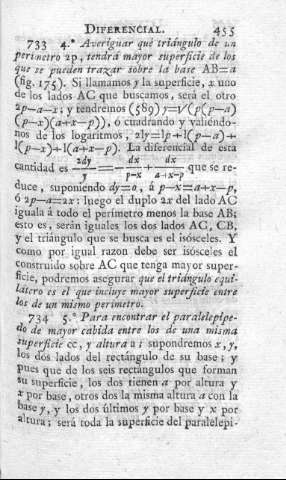 DIFERENCIAL. 455
733 4.° Averiguar qué triángulo de un
perímetro 2p, tendrá mayor superficie de los
que se pueden trazar sobre la base AB=a
(fig. 175). Si llamamos y la superficie, x uno
de los lados AC que buscamos, será el otro
2p—a—x; y tendremos (589) y=√(p(p—a)
(p—x)(a+x—p)), ó cuandrando y valiéndo-
nos de los logaritmos, 2ly=lp+l(p—a)+
l(p—x)+l(a+x—p). La diferencial de esta
cantidad es 2dy/y=—dx/p-x+dx/a+x-p que se re-
duce, suponiendo dy=0, á p—x=a+x—p,
ó 2p—a=2x: luego el duplo 2x del lado AC
iguala á todo el perímetro menos la base AB;
esto es, serán iguales los dos lados AC, CB,
y el triángulo que se busca es el isósceles. Y
como por igual razon debe ser isósceles el
construido sobre AC que tenga mayor super-
ficie, podremos asegurar que el triángulo equi-
látero es el que incluye mayor superficie entre
los de un mismo perímetro.
734 5.° Para encontrar el paralelepípe-
do de mayor cabida entre los de una misma
superficie cc, y altura a; supondremos x, y,
los dos lados del rectángulo de su base; y
pues que de los seis rectángulos que forman
su superficie, los dos tienen a por altura y
x por base, otros dos la misma altura a con la
base y, y los dos últimos y por base y x por
altura; será toda la superficie del paralelepí-